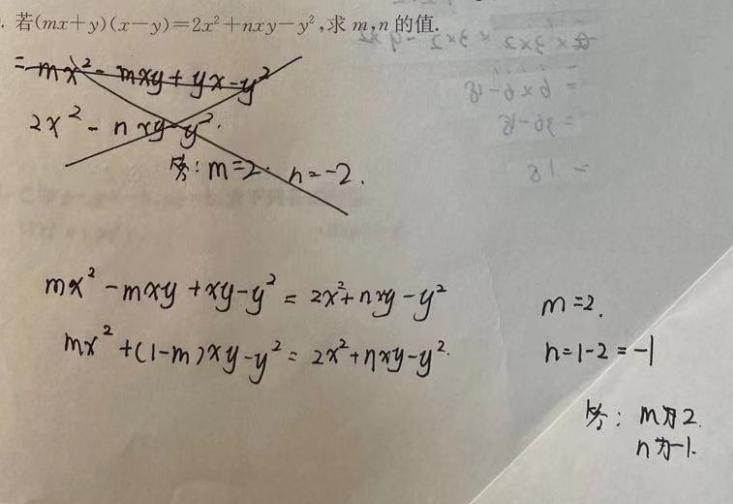 若(mx+y)(x-y)=2x²+nxy-y²,求m,n的值.
=mx²-mxy+yx-y²
2x²-nxy-y².
答:m=2. n=-2.
mx²-mxy+xy-y²=2x²+nxy-y²
mx²+(1-m)xy-y²=2x²+nxy-y².
m=2.
n=1-2=-1
答:m为2.
n为-1.